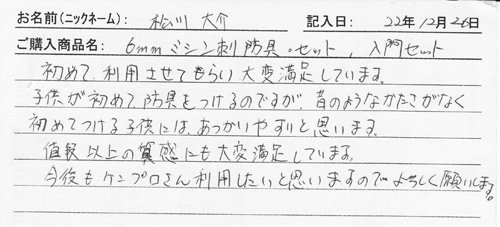 お名前(ニックネーム): 松川 大介 記入日: 22年12月26日
ご購入商品名: 6mmミシン刺防具・セット、入門セット
初めて、利用させてもらい大変満足しています。
子供が初めて、防具をつけるのですが、昔のようなかたさがなく
初めてつける子供には、あつかいやすいと思います。
値段以上の質感にも大変満足しています。
今後もケンプロさん利用したいと思いますのでよろしく願いします。